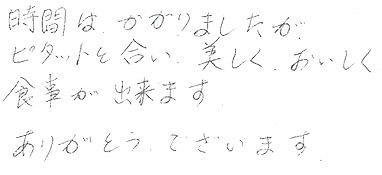 時間は、かかりましたが、
ピタットと合い、美しく、おいしく
食事が出来ます
ありがとう、ございます。